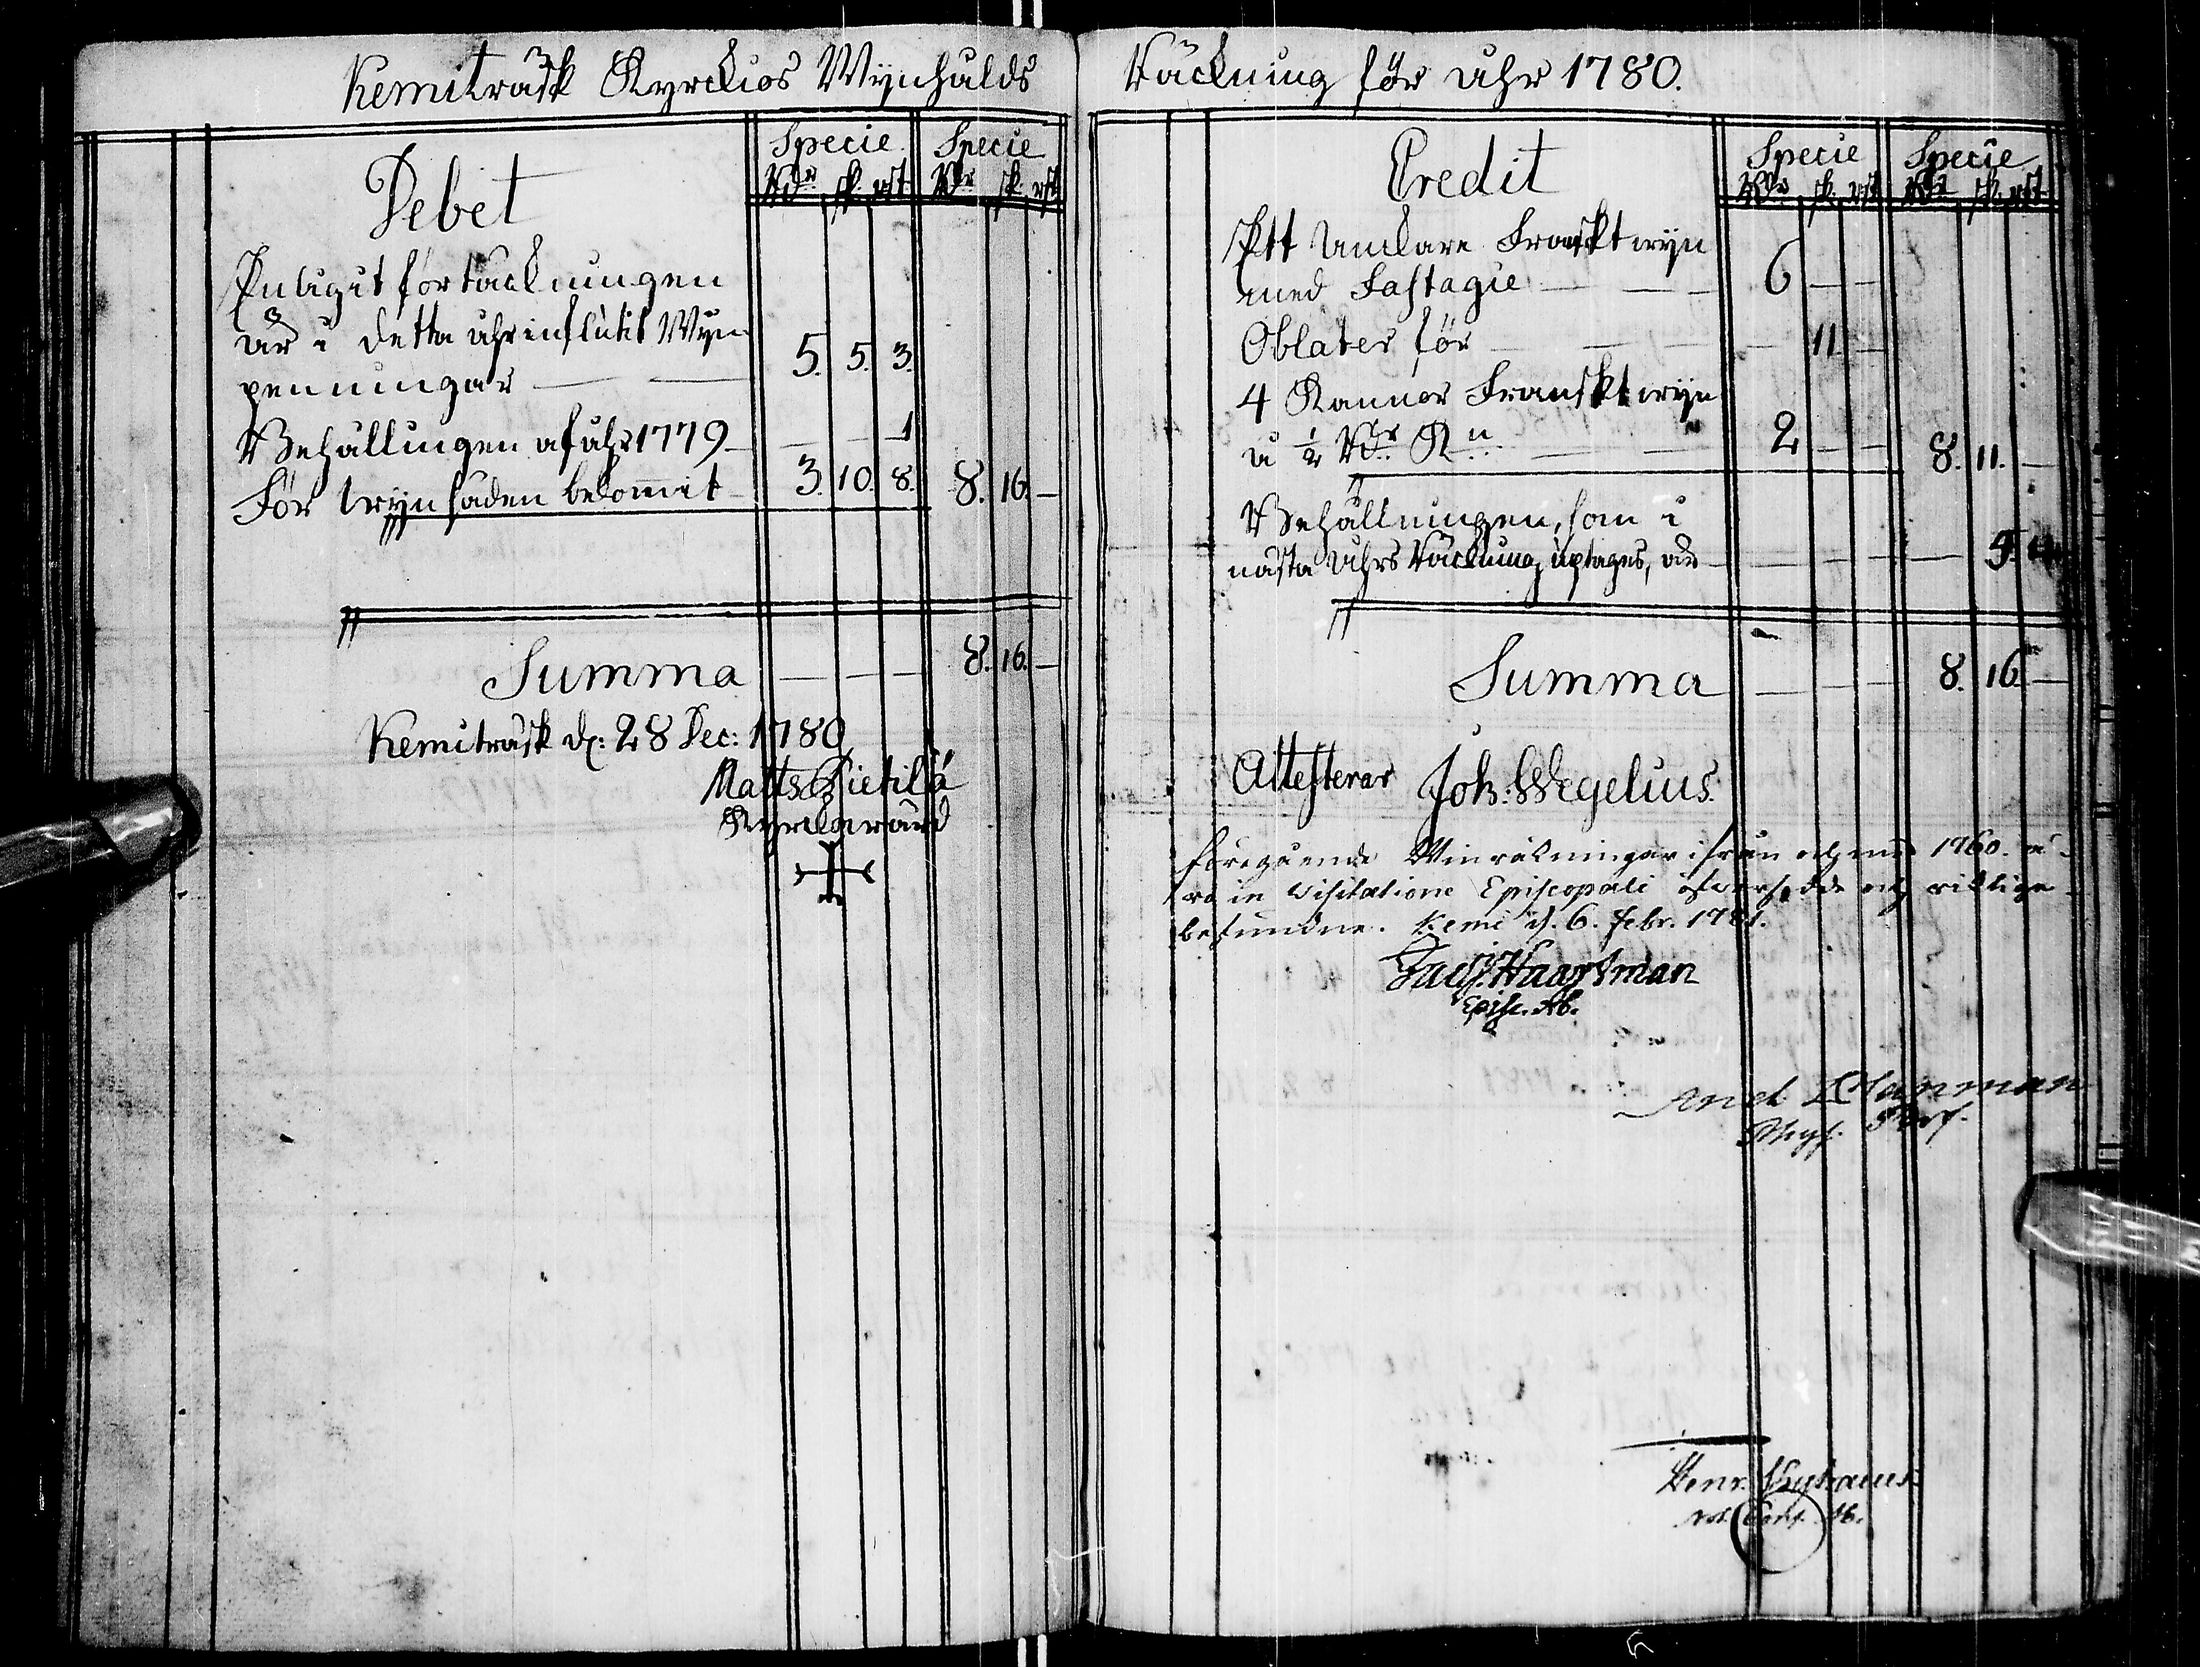 Kemiträsk Kyrckios Wijnhålds Räckning för Åhr 1780.
Debet
Specie Specie
Rdr sk. rst. Rdr sk. rst.
Enligit förtäckningen
är i detta åhr influtit Wijn
penningar — — 5. 5. 3.
Behållingen af åhr 1779 — — — 1
För Wijnsäden bekommit — 3. 10. 8. 8. 16. —
Summa — — — 8. 16. —
Kemiträsk d: 28 Dec: 1780
Matts Pietilä
Kyrckiovärd
Credit
Specie Specie
Rdr sk. rst. Rdr sk. rst.
Ett Anckare Franskt wijn
med Fastagie — — — 6 — —
Oblater för — — — — 11. —
4 Kannor Franskt wijn
á ½ Rdr Kn — — 2 — — 8. 11. —
Behållningen, som i
nästa Åhrs Räckning uptages, är — — — — — 5.
Summa — — — 8. 16. —
Attesterar Joh: Wegelius.
Föregående Winräkningar ifrån och med 1760. ä-
ro in Visitatione Episcopali öfwersedde och riktige
befundne. Kemi d. 6. Febr. 1781.
Jac. Haartman
Episc. Ab.
And. Planman
Phys. Prof.
Henr.
Not. Cons. Ab.